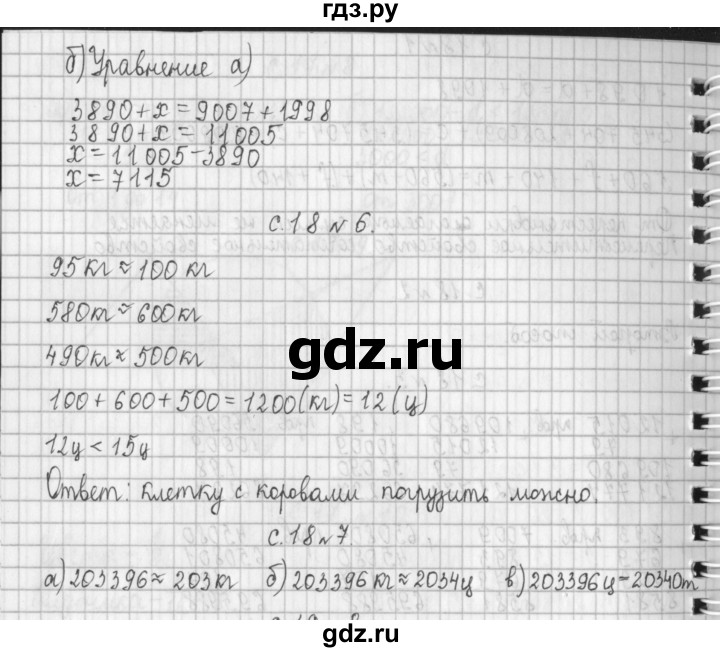 гдз.ру
б) Уравнение а)
3890+x=9007+1998
3890+x=11005
x=11005-3890
x=7115
с.18 №6.
95кг≈100кг
580кг≈600кг
490кг≈500кг
gdz.ru
100+600+500=1200(кг)=12(ц)
12ц<15ц
Ответ: клетку с коровами погрузить можно.
с.18 №7
а) 203396≈203кг б) 203396кг≈2034ц в) 203396ц≈20340т
gdz.ru